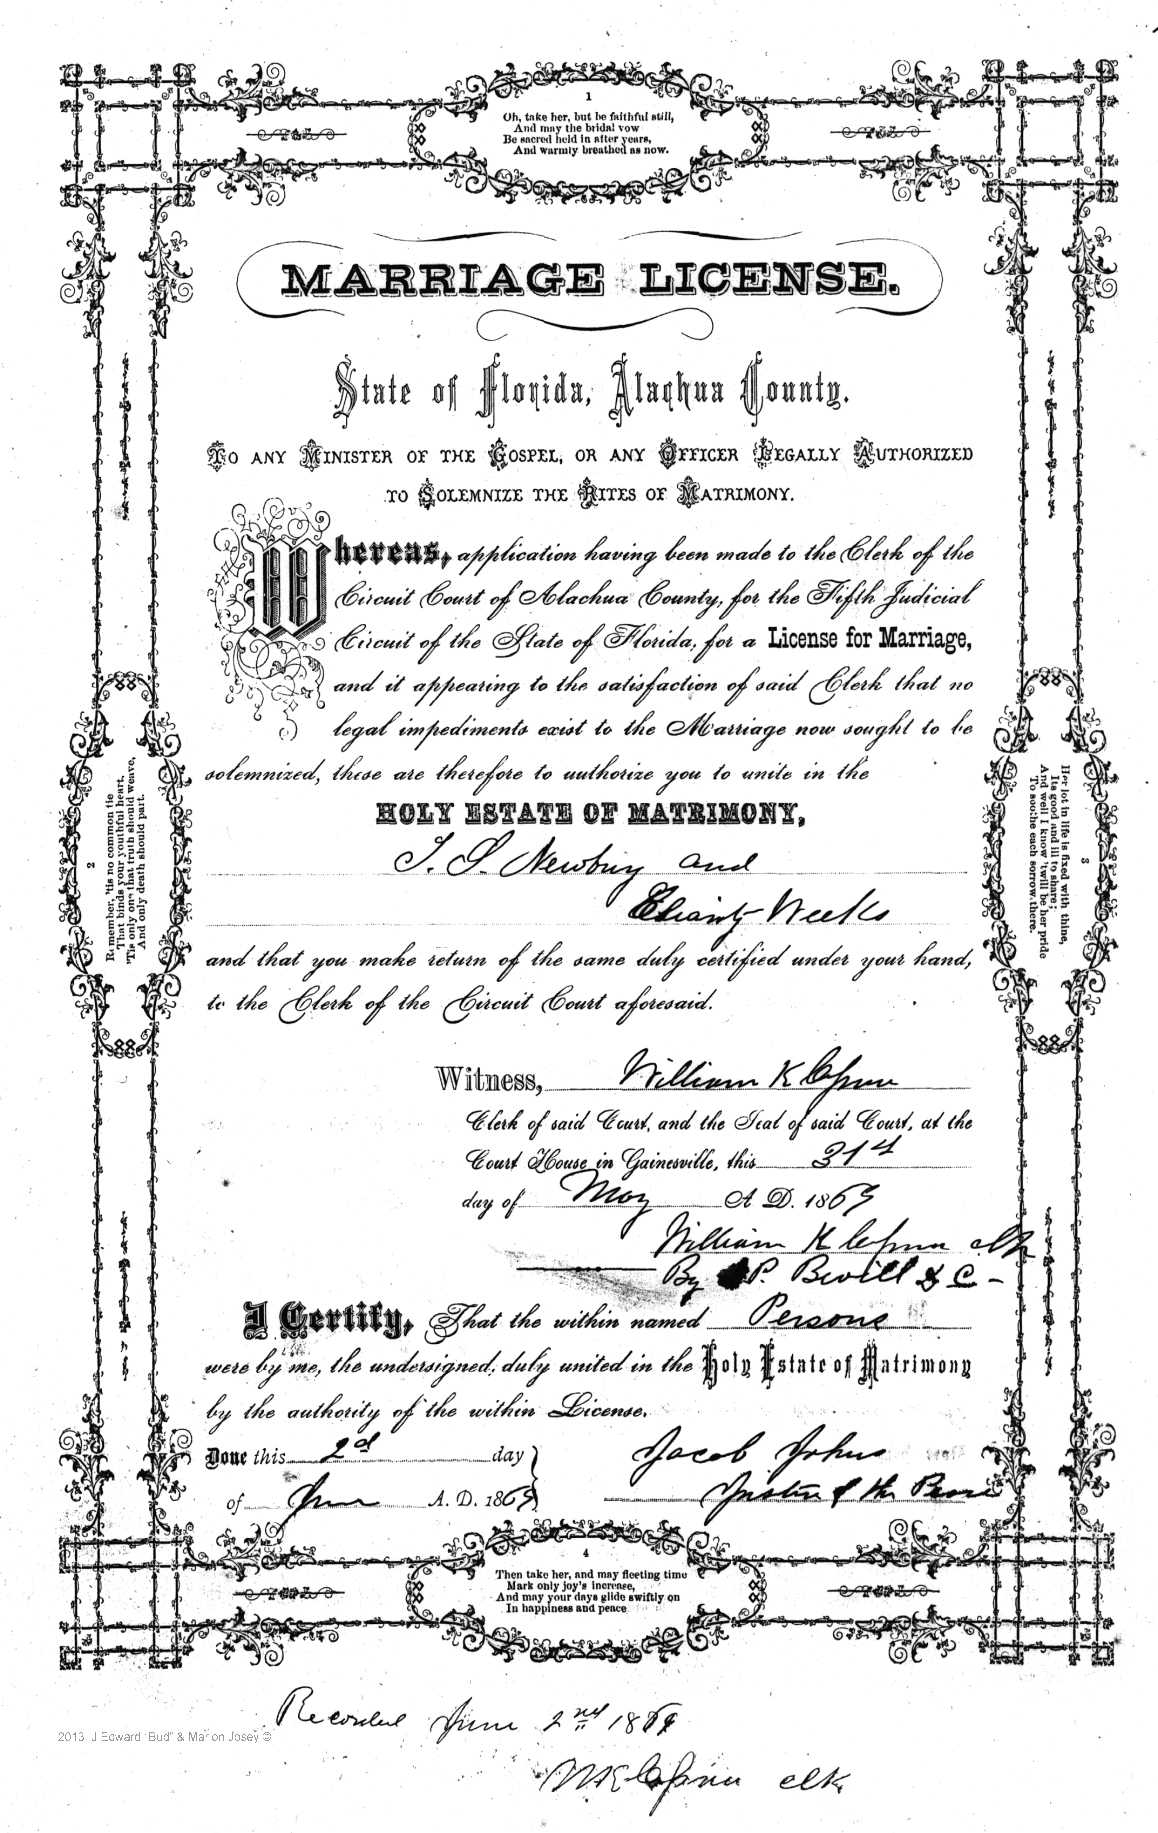 1
Oh, take her, but be faithful still,
And may the bridal vow
Be sacred held in after years,
And warmly breathed as now.
MARRIAGE LICENSE.
State of Florida, Alachua County.
TO ANY MINISTER OF THE GOSPEL, OR ANY OFFICER LEGALLY AUTHORIZED
TO SOLEMNIZE THE RITES OF MATRIMONY.
Whereas, application having been made to the Clerk of the
Circuit Court of Alachua County, for the Fifth Judicial
Circuit of the State of Florida, for a License for Marriage,
and it appearing to the satisfaction of said Clerk that no
legal impediments exist to the Marriage now sought to be
solemnized, these are therefore to authorize you to unite in the
HOLY ESTATE OF MATRIMONY,
Newbury and
Charity Weeks
and that you make return of the same duly certified under your hand,
to the Clerk of the Circuit Court aforesaid.
Witness, William K
Clerk of said Court, and the Seal of said Court, at the
Court House in Gainesville, this 31st
day of May A. D. 1869
William K clk
By P. Bevill D C
I Certify, That the within named Persons
were by me, the undersigned, duly united in the Holy Estate of Matrimony
by the authority of the within License.
Done this 2d day
of June A. D. 1869
Jacob Johns
Justice of the Peace
2
Remember, 'tis no common tie
That binds your youthful heart,
'Tis only one that truth should weave,
And only death should part.
3
Her lot in life is fixed with thine,
Its good and ill to share;
And well I know 'twill be her pride
To soothe each sorrow there.
4
Then take her, and may fleeting time
Mark only joy's increase,
And may your days glide swiftly on
In happiness and peace
Recorded June 2nd 1869
clk
2013 J Edward "Bud" & Marion Josey ©